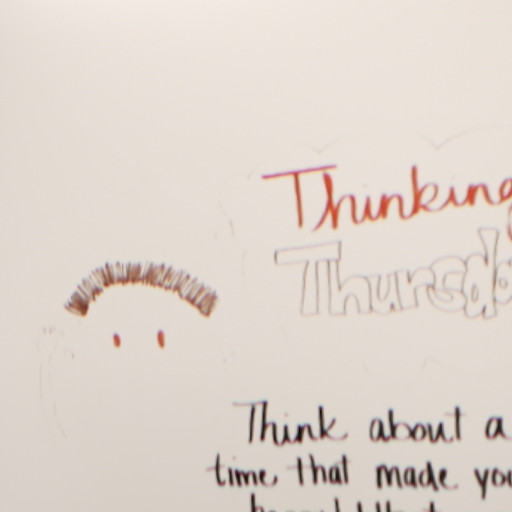 Thinking
Thursda
Think about a
time that made you